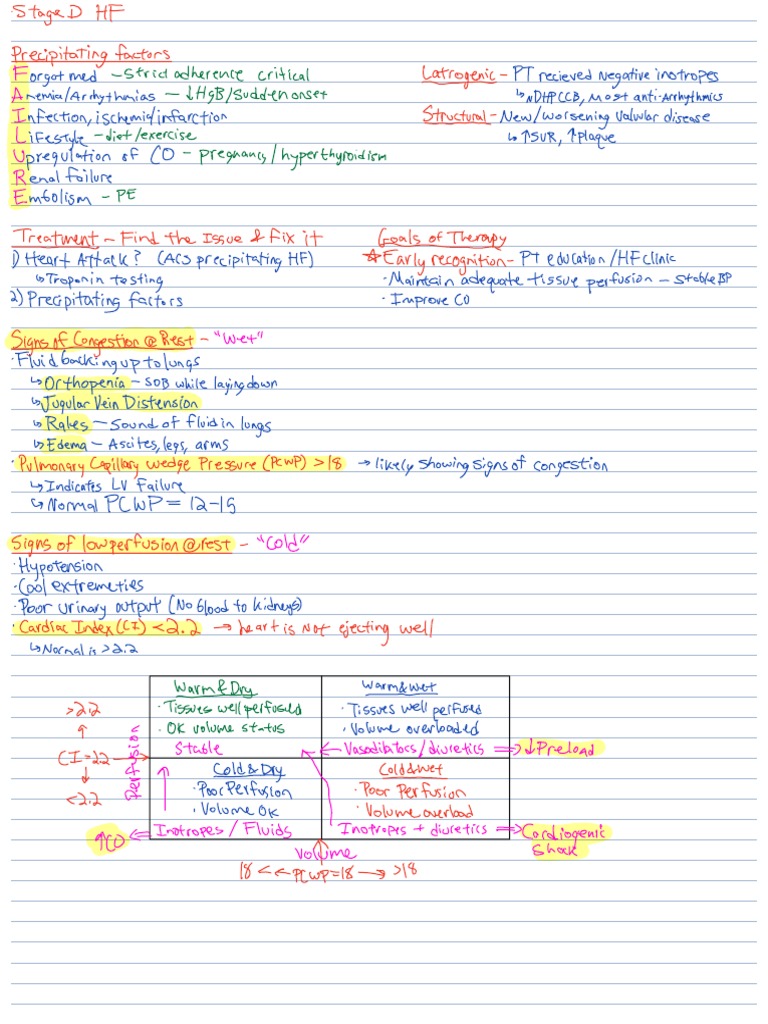 Stage D HF
Precipitating factors
Forgot med - Strict adherence critical
Anemia/Arrhythmias - ↓HgB/Sudden onset
Infection, ischemia/infarction
Lifestyle - diet/exercise
Upregulation of CO - pregnancy/hyperthyroidism
Renal failure
Embolism - PE
Latrogenic - PT recieved negative inotropes
↳ NDHP CCB, Most anti-Arrhythmics
Structural - New/worsening valvular disease
↳ ↑SVR, ↑plaque
Treatment - Find the Issue & fix it
1) Heart Attack? (ACS precipitating HF)
↳ Troponin testing
2) Precipitating factors
Goals of Therapy
☆ Early recognition - PT education/HF clinic
· Maintain adequate tissue perfusion - stable BP
· Improve CO
Signs of Congestion @ Rest - "Wet"
· Fluid backing up to lungs
↳ Orthopenia - SOB while laying down
↳ Jugular Vein Distension
↳ Rales - Sound of fluid in lungs
↳ Edema - Ascites, legs, arms
· Pulmonary Capillary wedge Pressure (PCWP) >18 → likely showing signs of congestion
↳ Indicates LV failure
↳ Normal PCWP = 12-15
Signs of low perfusion @ rest - "Cold"
· Hypotension
· Cool extremeties
· Poor urinary output (No blood to kidneys)
· Cardiac Index (CI) < 2.2 → heart is not ejecting well
↳ Normal is > 2.2
Warm & Dry
· Tissues well perfused
· OK volume status
Stable
Warm & Wet
· Tissues well perfused
· Volume overloaded
← Vasodilators/diuretics ⇒ ↓Preload
>2.2
↑
CI = 2.2 →
↓
<2.2
Perfusion
Cold & Dry
· Poor Perfusion
· Volume OK
↑CO ⇐ Inotropes / Fluids
Cold & Wet
· Poor Perfusion
· Volume overload
Inotropes + diuretics ⇒ Cardiogenic Shock
Volume
18 < ← PCWP = 18 → >18